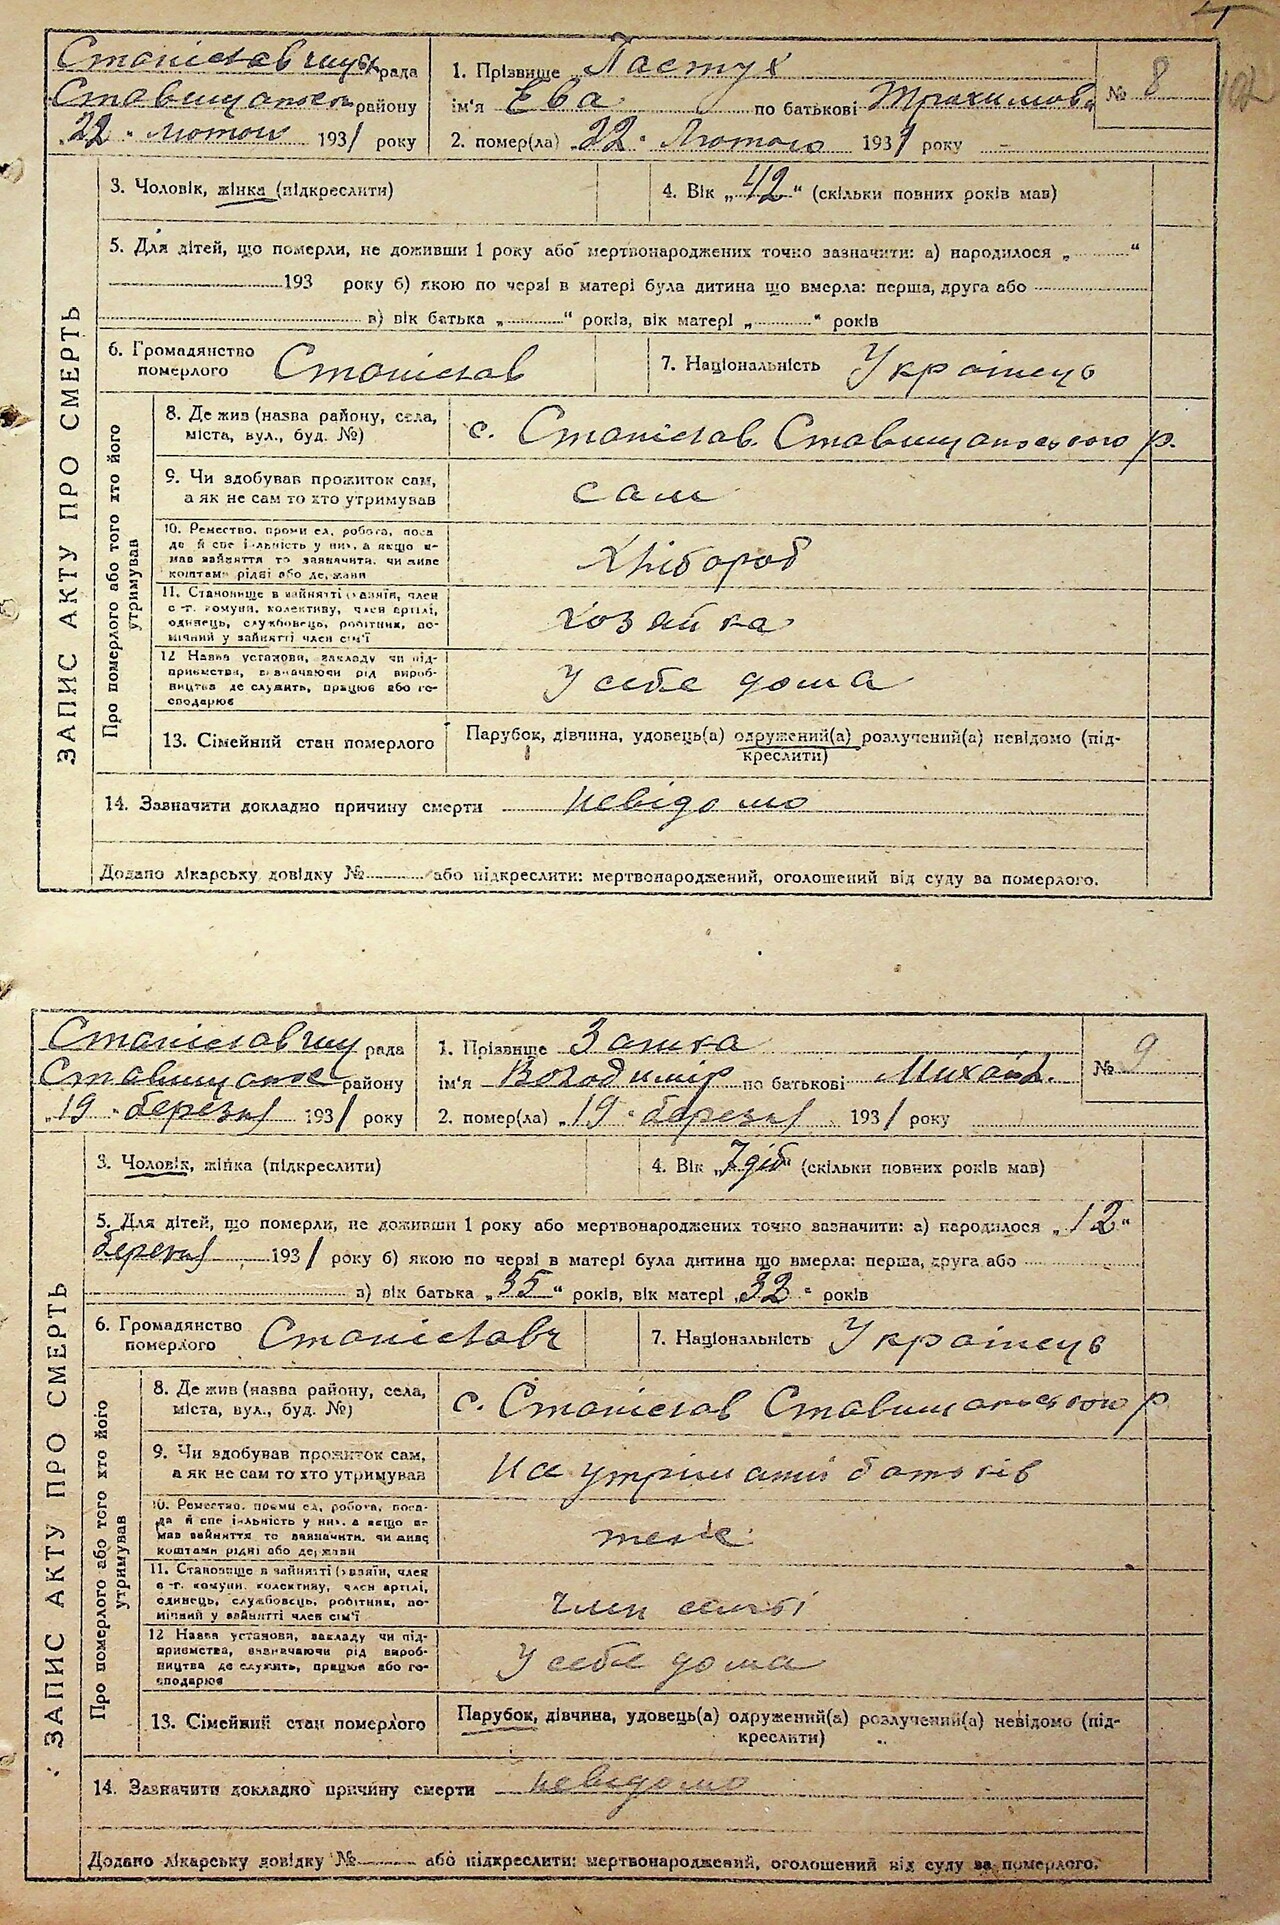 Станіславчицьк рада
Ставищанськ району
„22“ лютого 1931 року
1. Прізвище Пастух
ім'я Ева по батькові Трохимовн
2. помер(ла) „22“ Лютого 1931 року
№ 8
3. Чоловік, жінка (підкреслити)
4. Вік „42“ (скільки повних років мав)
5. Для дітей, що померли, не доживши 1 року або мертвонароджених точно зазначити: а) народилося „ “
193 року б) якою по черзі в матері була дитина що вмерла: перша, друга або
в) вік батька „ “ років, вік матері „ “ років
6. Громадянство
померлого Станіслав
7. Національність Українець
8. Де жив (назва району, села,
міста, вул., буд. №)
с. Станіслав. Ставищанського р.
9. Чи здобував прожиток сам,
а як не сам то хто утримував
сам
10. Ремество, промисел, робота, поса-
да й спеціяльність у них, а якщо не
мав зайняття то зазначити, чи живе
коштами рідні або держави
Хлібороб
11. Становище в зайнятті (хазяїн, член
с-г. комуни, колективу, член артілі,
одинець, службовець, робітник, по-
мічний у зайнятті член сім'ї
Хозяйка
12 Назва установи, закладу чи під-
приємства, визначаючи рід вироб-
ництва де служить, працює або го-
сподарює
У себе дома
13. Сімейний стан померлого
Парубок, дівчина, удовець(а) одружений(а) розлучений(а) невідомо (під-
креслити)
14. Зазначити докладно причину смерти невідомо
Додано лікарську довідку № або підкреслити: мертвонароджений, оголошений від суду за померлого.
ЗАПИС АКТУ ПРО СМЕРТЬ
Про померлого або того хто його
утримував
Станіславчиц рада
Ставищанськ району
„19“ березня 1931 року
1. Прізвище Заика
ім'я Володимір по батькові Михайл.
2. помер(ла) „19“ березня 1931 року
№ 9
3. Чоловік, жінка (підкреслити)
4. Вік „7 діб“ (скільки повних років мав)
5. Для дітей, що померли, не доживши 1 року або мертвонароджених точно зазначити: а) народилося „12“
березня 1931 року б) якою по черзі в матері була дитина що вмерла: перша, друга або
в) вік батька „35“ років, вік матері „32“ років
6. Громадянство
померлого Станіславч
7. Національність Українець
8. Де жив (назва району, села,
міста, вул., буд. №)
с. Станіслав Ставищанського р
9. Чи здобував прожиток сам,
а як не сам то хто утримував
На утріманії батьків
10. Ремество, промисел, робота, поса-
да й спеціяльність у них, а якщо не
мав зайняття то зазначити, чи живе
коштами рідні або держави
теж
11. Становище в зайнятті (хазяїн, член
с-г. комуни, колективу, член артілі,
одинець, службовець, робітник, по-
мічний у зайнятті член сім'ї
член семьї
12 Назва установи, закладу чи під-
приємства, визначаючи рід вироб-
ництва де служить, працює або го-
сподарює
У себе дома
13. Сімейний стан померлого
Парубок, дівчина, удовець(а) одружений(а) розлучений(а) невідомо (під-
креслити)
14. Зазначити докладно причину смерти невідомо
Додано лікарську довідку № або підкреслити: мертвонароджений, оголошений від суду за померлого.
ЗАПИС АКТУ ПРО СМЕРТЬ
Про померлого або того хто його
утримував